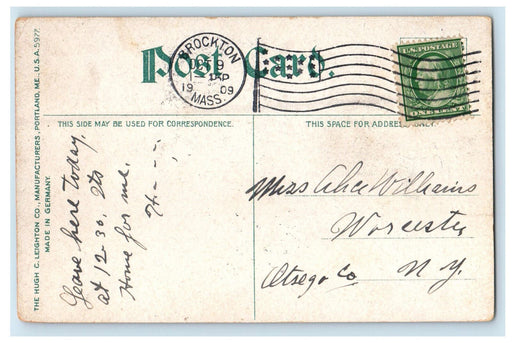 Post Card.
BROCKTON
19
1909
MASS.
U.S. POSTAGE
ONE CENT
THIS SIDE MAY BE USED FOR CORRESPONDENCE.
THIS SPACE FOR ADDRESS ONLY.
THE HUGH C. LEIGHTON CO., MANUFACTURERS, PORTLAND, ME., U.S.A. 5977.
MADE IN GERMANY.
Leave here today,
at 12-30. Its
Home for me.
H----
Miss Alice Williams
Worcester
Otsego Co N.Y.